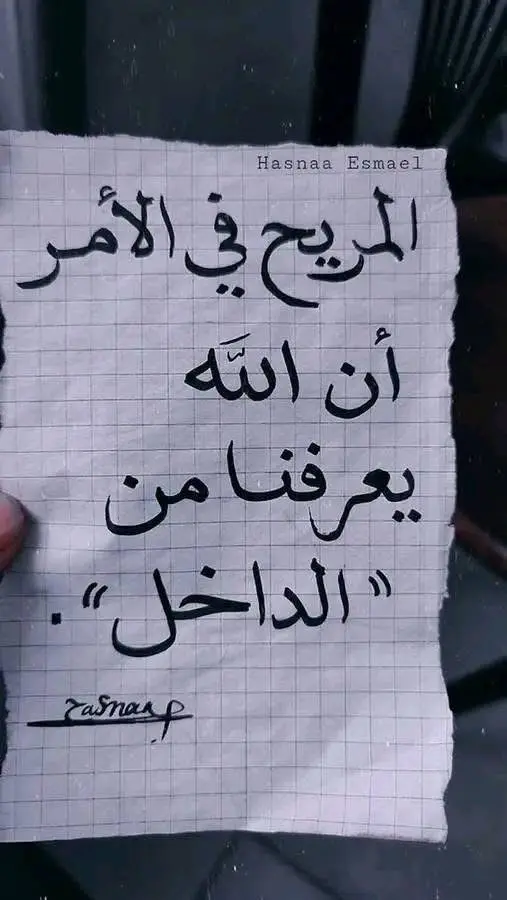 Hasnaa Esmael
المريح في الأمر
أن الله
يعرفنا من
"الداخل".